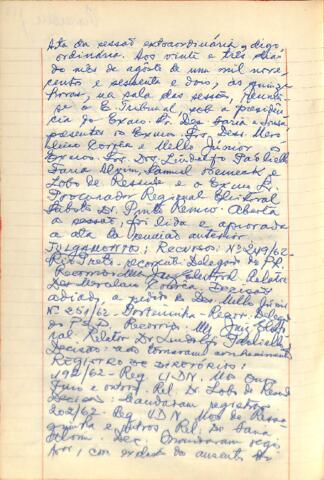 Ata da sessão extraordinária, digo
ordinária. Aos vinte e três dias
do mês de agosto de um mil nove-
centos e sessenta e dois, às quinze
horas, na sala das sessões, reuniu-
se o E. Tribunal, sob a presidên-
cia do Exmo. Sr. Des. Faria e Sousa,
presentes os Exmos. Srs. Dess.
Correa e Mello Júnior, os
Exmos. Srs. Drs. Lindolfo Paolielle,
Faria Alvim, Samuel
Lobo de Resende e o Exmo. Sr.
Procurador Regional Eleitoral
Dr. Pinto Renno. Aberta
a sessão, foi lida e aprovada
a ata da reunião anterior.
JULGAMENTOS: Recursos: Nº 249/62-
Rio Preto. recorrente: Delegado do P.R.
Recorrido: MM. Juiz Eleitoral. Relator
Des. Correa. Decisão:
adiado, a pedido do Des. Mello Júnior
Nº 251/62- Recor. Delegado
do P.S.D. Recorrido. MM. Juiz Eleito-
ral. Relator Dr. Lindolfo Paolielle
Decisão: não tomaram conhecimento
REGISTRO DE DIRETÓRIOS:
192/62- Req. U.D.N. Mos.
e outros. Rel. Dr. Lobo de Resende
Decisão: mandaram registrar
202/62- Req. U.D.N. Mos. de
e outros. Rel. Dr. Faria
Alvim. Dec. mandaram regis-
trar, com exclusão do aumento